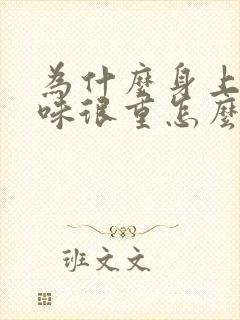 為什麼身上
味很重怎麼
班文文